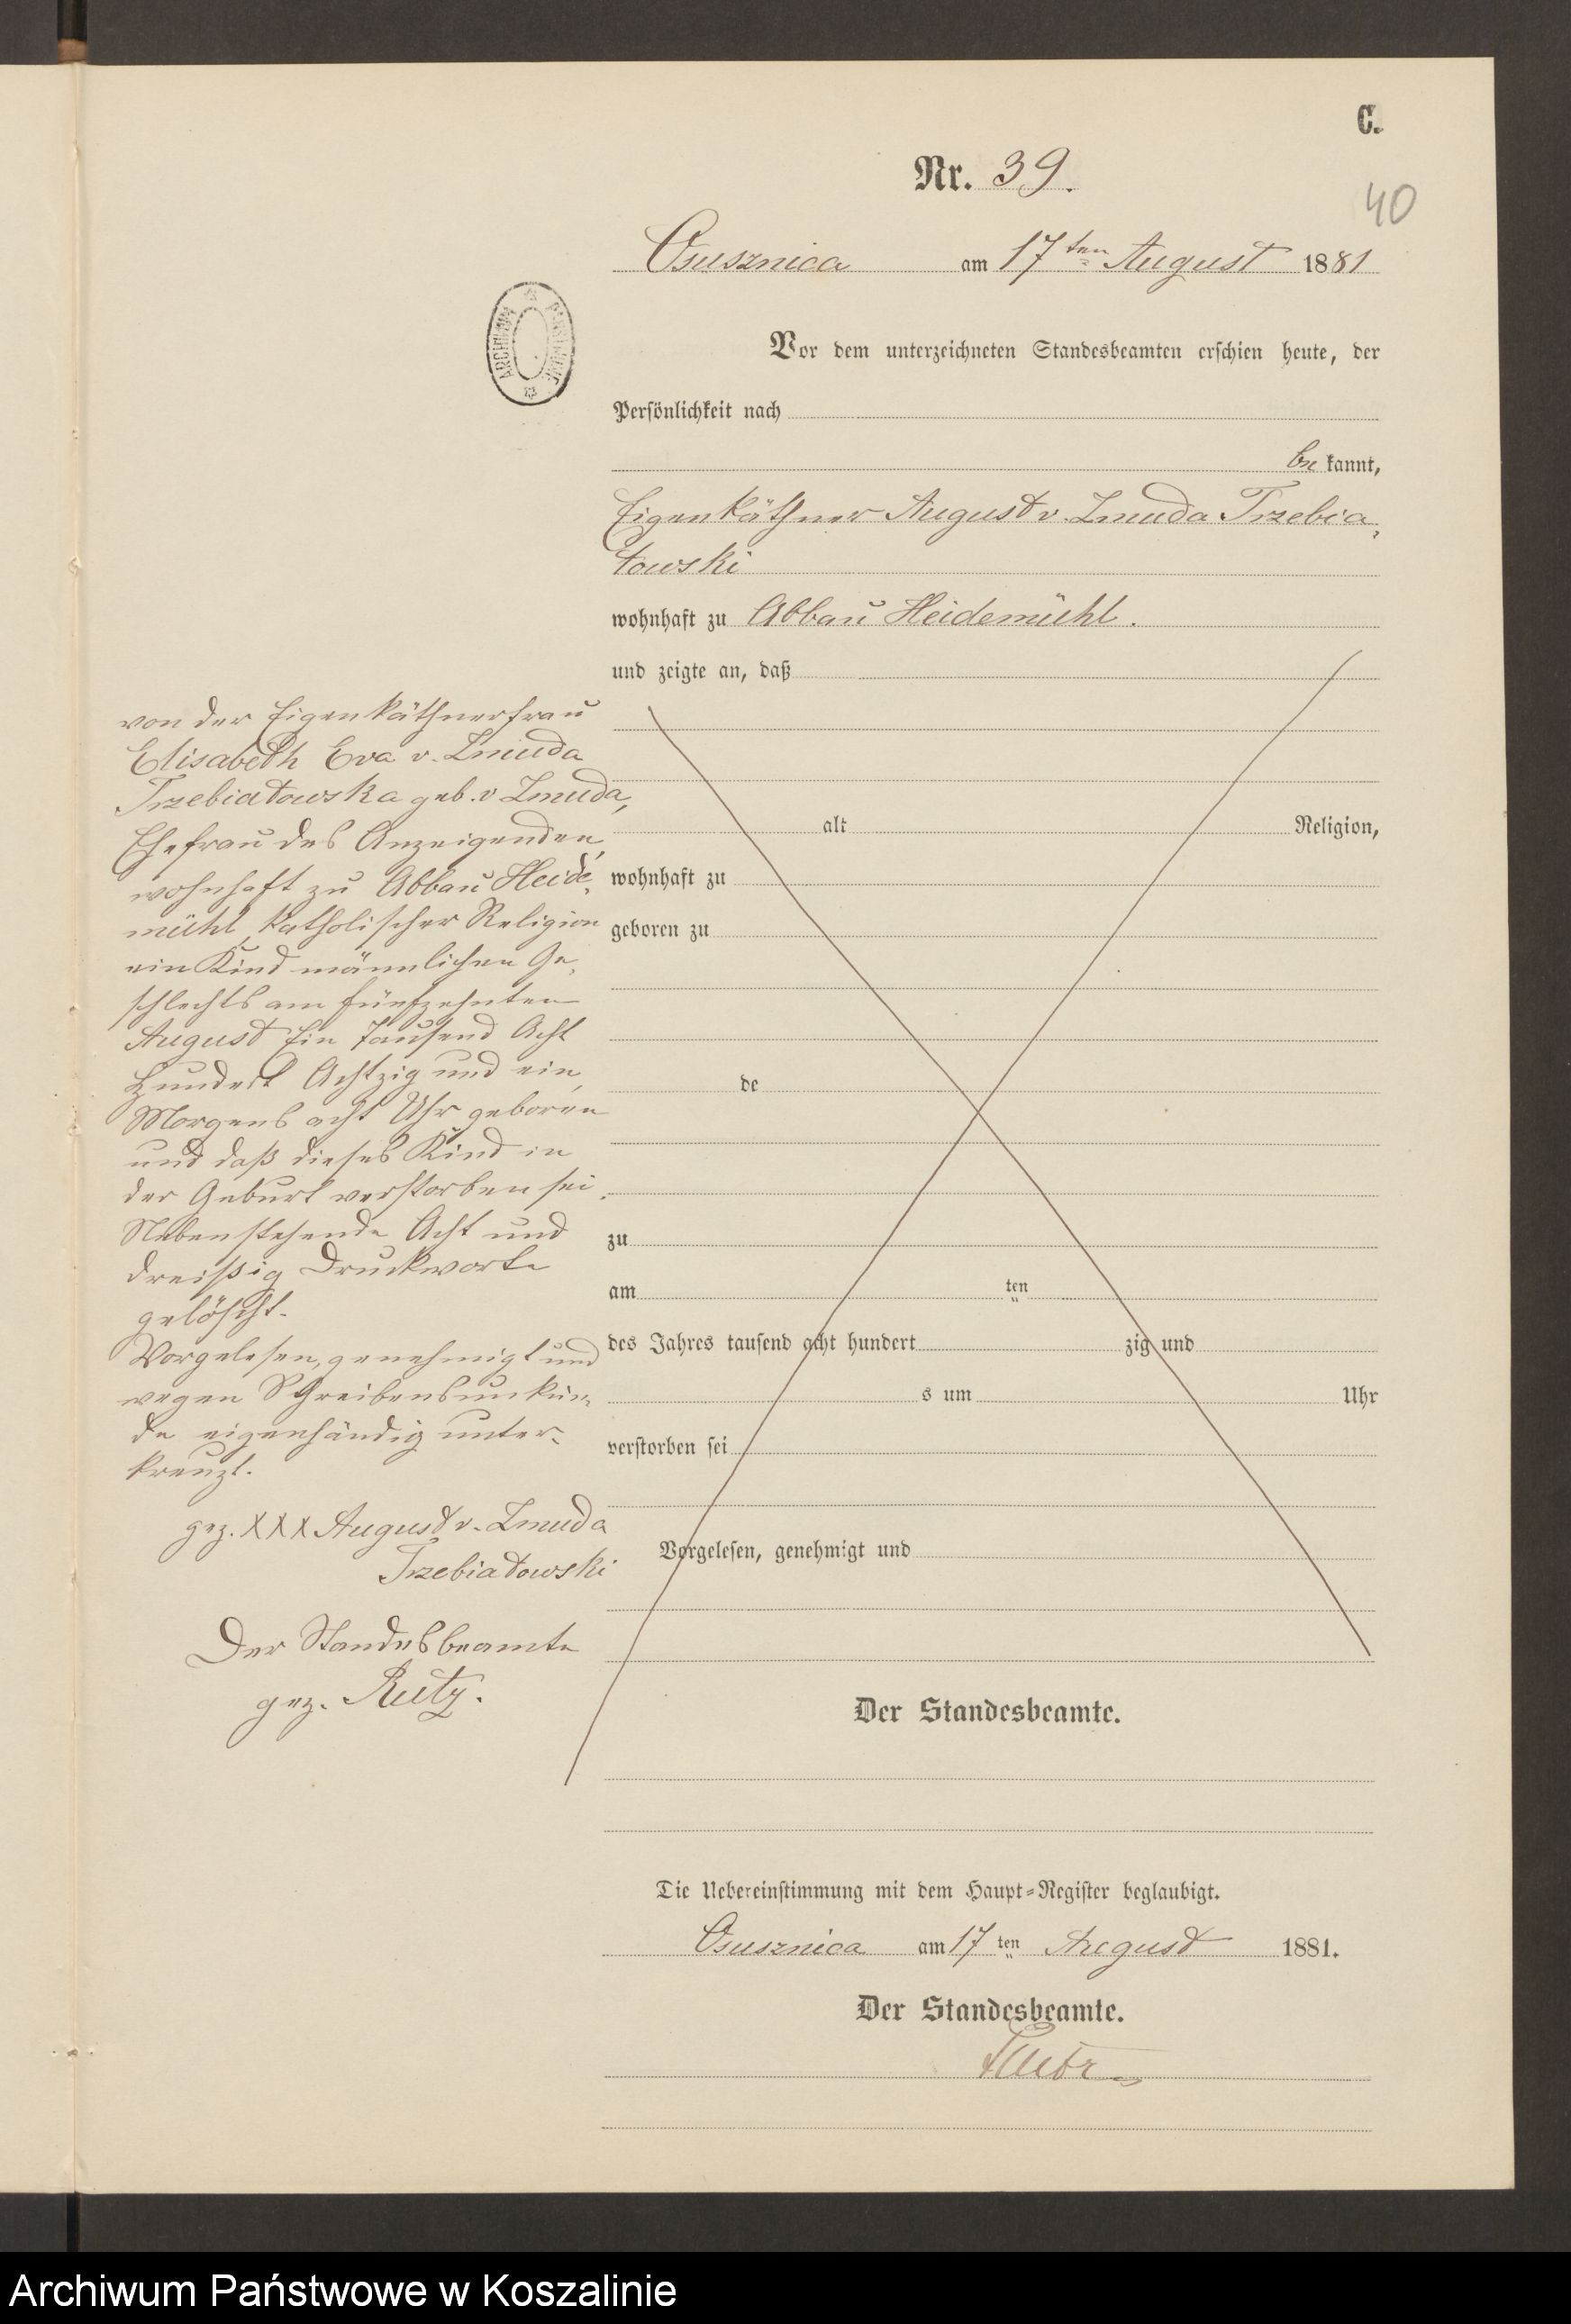 C.
Nr. 39.
40
Osusznica am 17ten August 1881
ARCHIWUM PAŃSTWOWE
Vor dem unterzeichneten Standesbeamten erschien heute, der
Persönlichkeit nach
be kannt,
Eigenkäthner August v. Zmuda Trzebia,
towski
wohnhaft zu Abbau Heidemühl.
und zeigte an, daß
von der Eigenkäthnerfrau
Elisabeth Eva v. Zmuda
Trzebiatowska geb. v Zmuda,
Ehefrau des Anzeigenden,
wohnhaft zu Abbau Heide,
mühl, katholischer Religion
ein Kind männlichen Ge,
schlechts am fünfzehnten
August Ein Tausend Acht
Hundert Achtzig und ein,
Morgens acht Uhr geboren
und daß dieses Kind in
der Geburt verstorben sei.
Nebenstehende Acht und
dreißig Druckworte
gelöscht.
Vorgelesen, genehmigt und
wegen Schreibensunkun,
de eigenhändig unter-
kreuzt.
gez. XXX August v. Zmuda
Trzebiatowski
Der Standesbeamte
gez. Rutz.
alt Religion,
wohnhaft zu
geboren zu
de
zu
am ten
des Jahres tausend acht hundert zig und
s um Uhr
verstorben sei
Vorgelesen, genehmigt und
Der Standesbeamte.
Die Uebereinstimmung mit dem Haupt-Register beglaubigt.
Osusznica am 17 ten August 1881.
Der Standesbeamte.
Archiwum Państwowe w Koszalinie